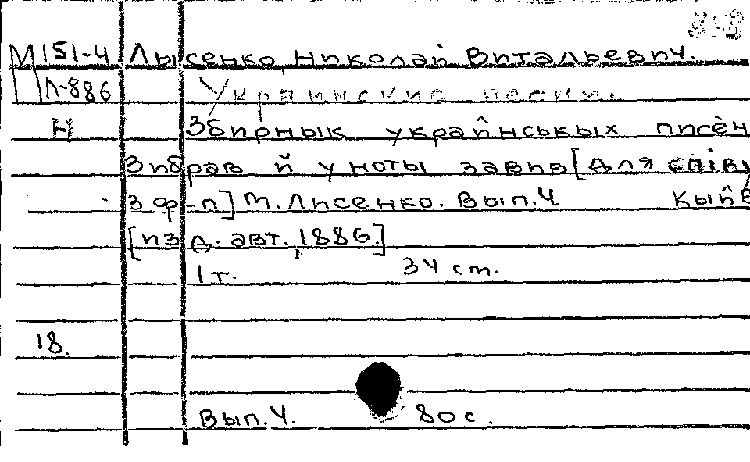 М151-4 Лысенко, Николай Витальевич.
Л-886 Украинские песни.
Н Збирнык украйнськых писень
Зибрав й у ноты завив [для співу
з ф-п] М. Лисенко. Вып. 4 Кыйв
[изд. авт. 1886.]
1 т. 34 cm.
18.
Вып. 4. 80 с.